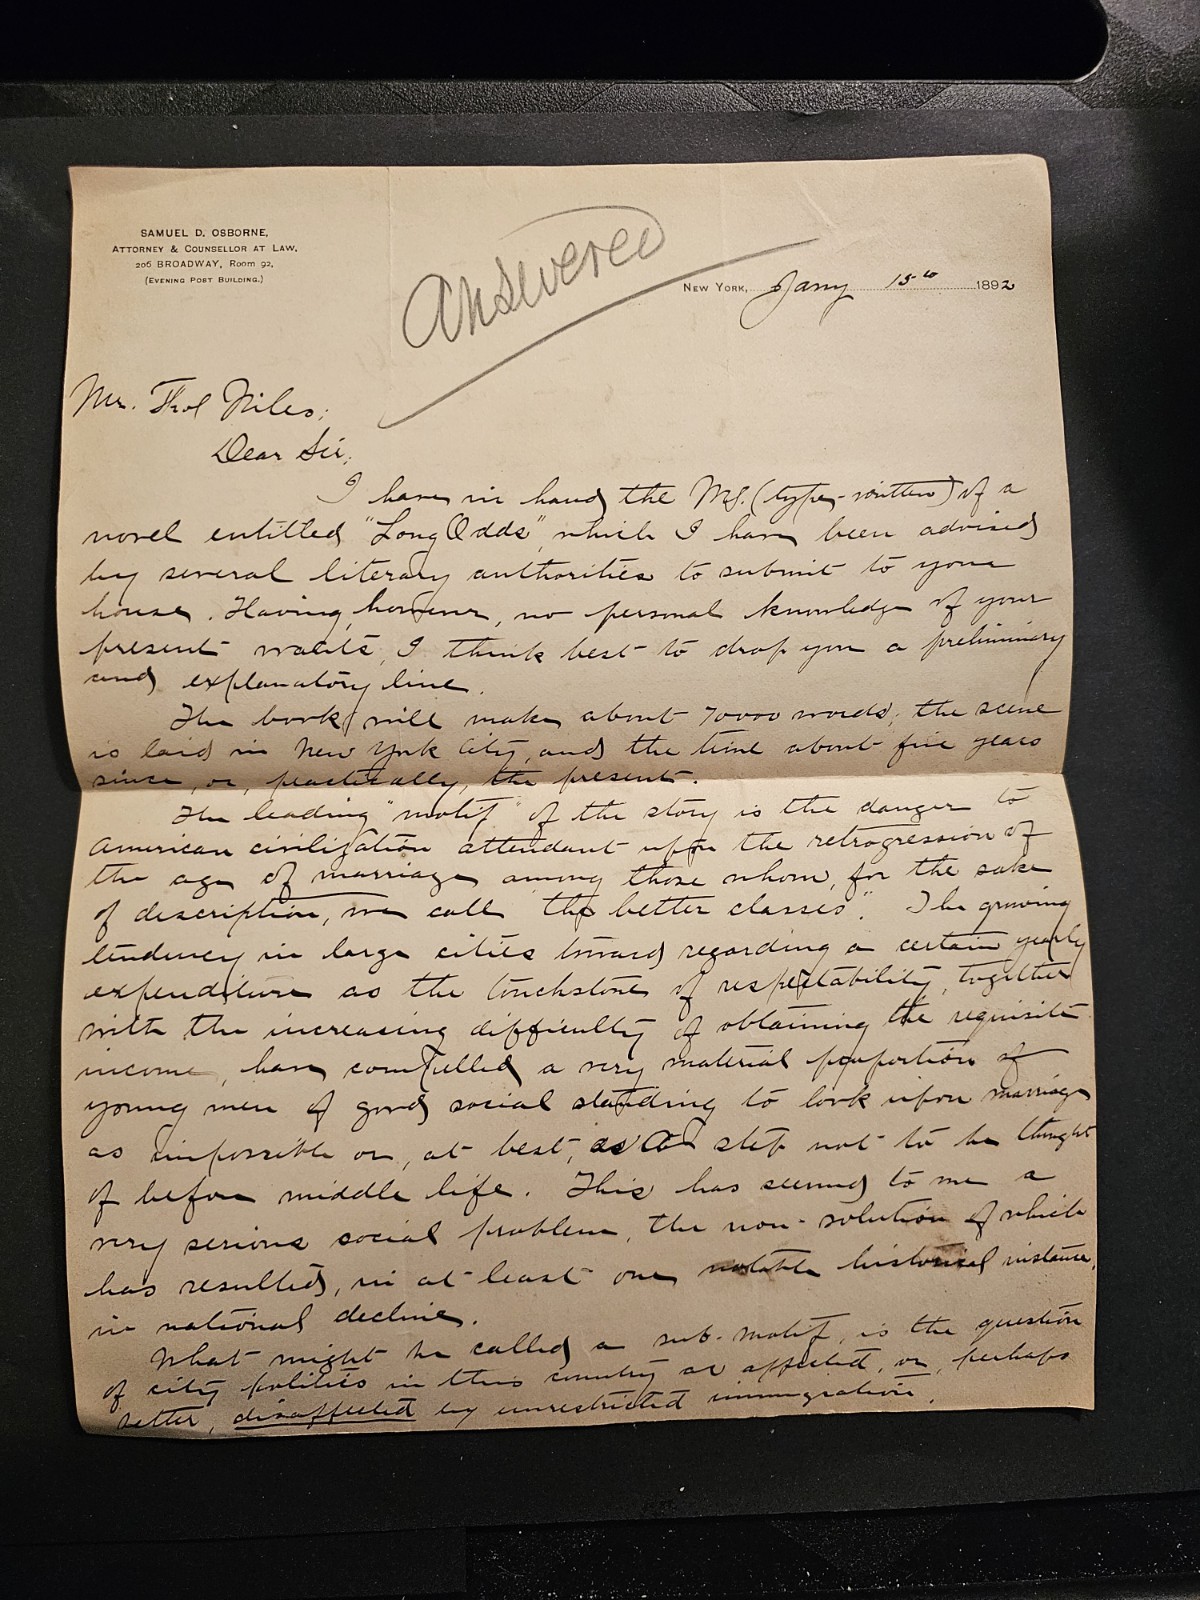 SAMUEL D. OSBORNE,
ATTORNEY & COUNSELLOR AT LAW,
206 BROADWAY, Room 92,
(EVENING POST BUILDING.)
Answered
NEW YORK, Jany 15th 1892
Mr. Thos Niles;
Dear Sir;
I have in hand the MS. (type-written) of a
novel entitled "Long Odds", which I have been advised
by several literary authorities to submit to your
house. Having, however, no personal knowledge of your
present wants, I think best to drop you a preliminary
and explanatory line.
The book will make about 70000 words; the scene
is laid in New York City, and the time about five years
since, or, practically, the present.
The leading "motif" of the story is the danger to
American civilization attendant upon the retrogression of
the age of marriage among those whom, for the sake
of description, we call "the better classes". The growing
tendency in large cities toward regarding a certain yearly
expenditure as the touchstone of respectability, together
with the increasing difficulty of obtaining the requisite
income, have compelled a very material proportion of
young men of good social standing to look upon marriage
as impossible or, at best, as a step not to be thought
of before middle life. This has seemed to me a
very serious social problem, the non-solution of which
has resulted, in at least one notable historical instance,
in national decline.
What might be called a sub-motif, is the question
of city politics in this country as affected, or, perhaps
better, disaffected by unrestricted immigration.